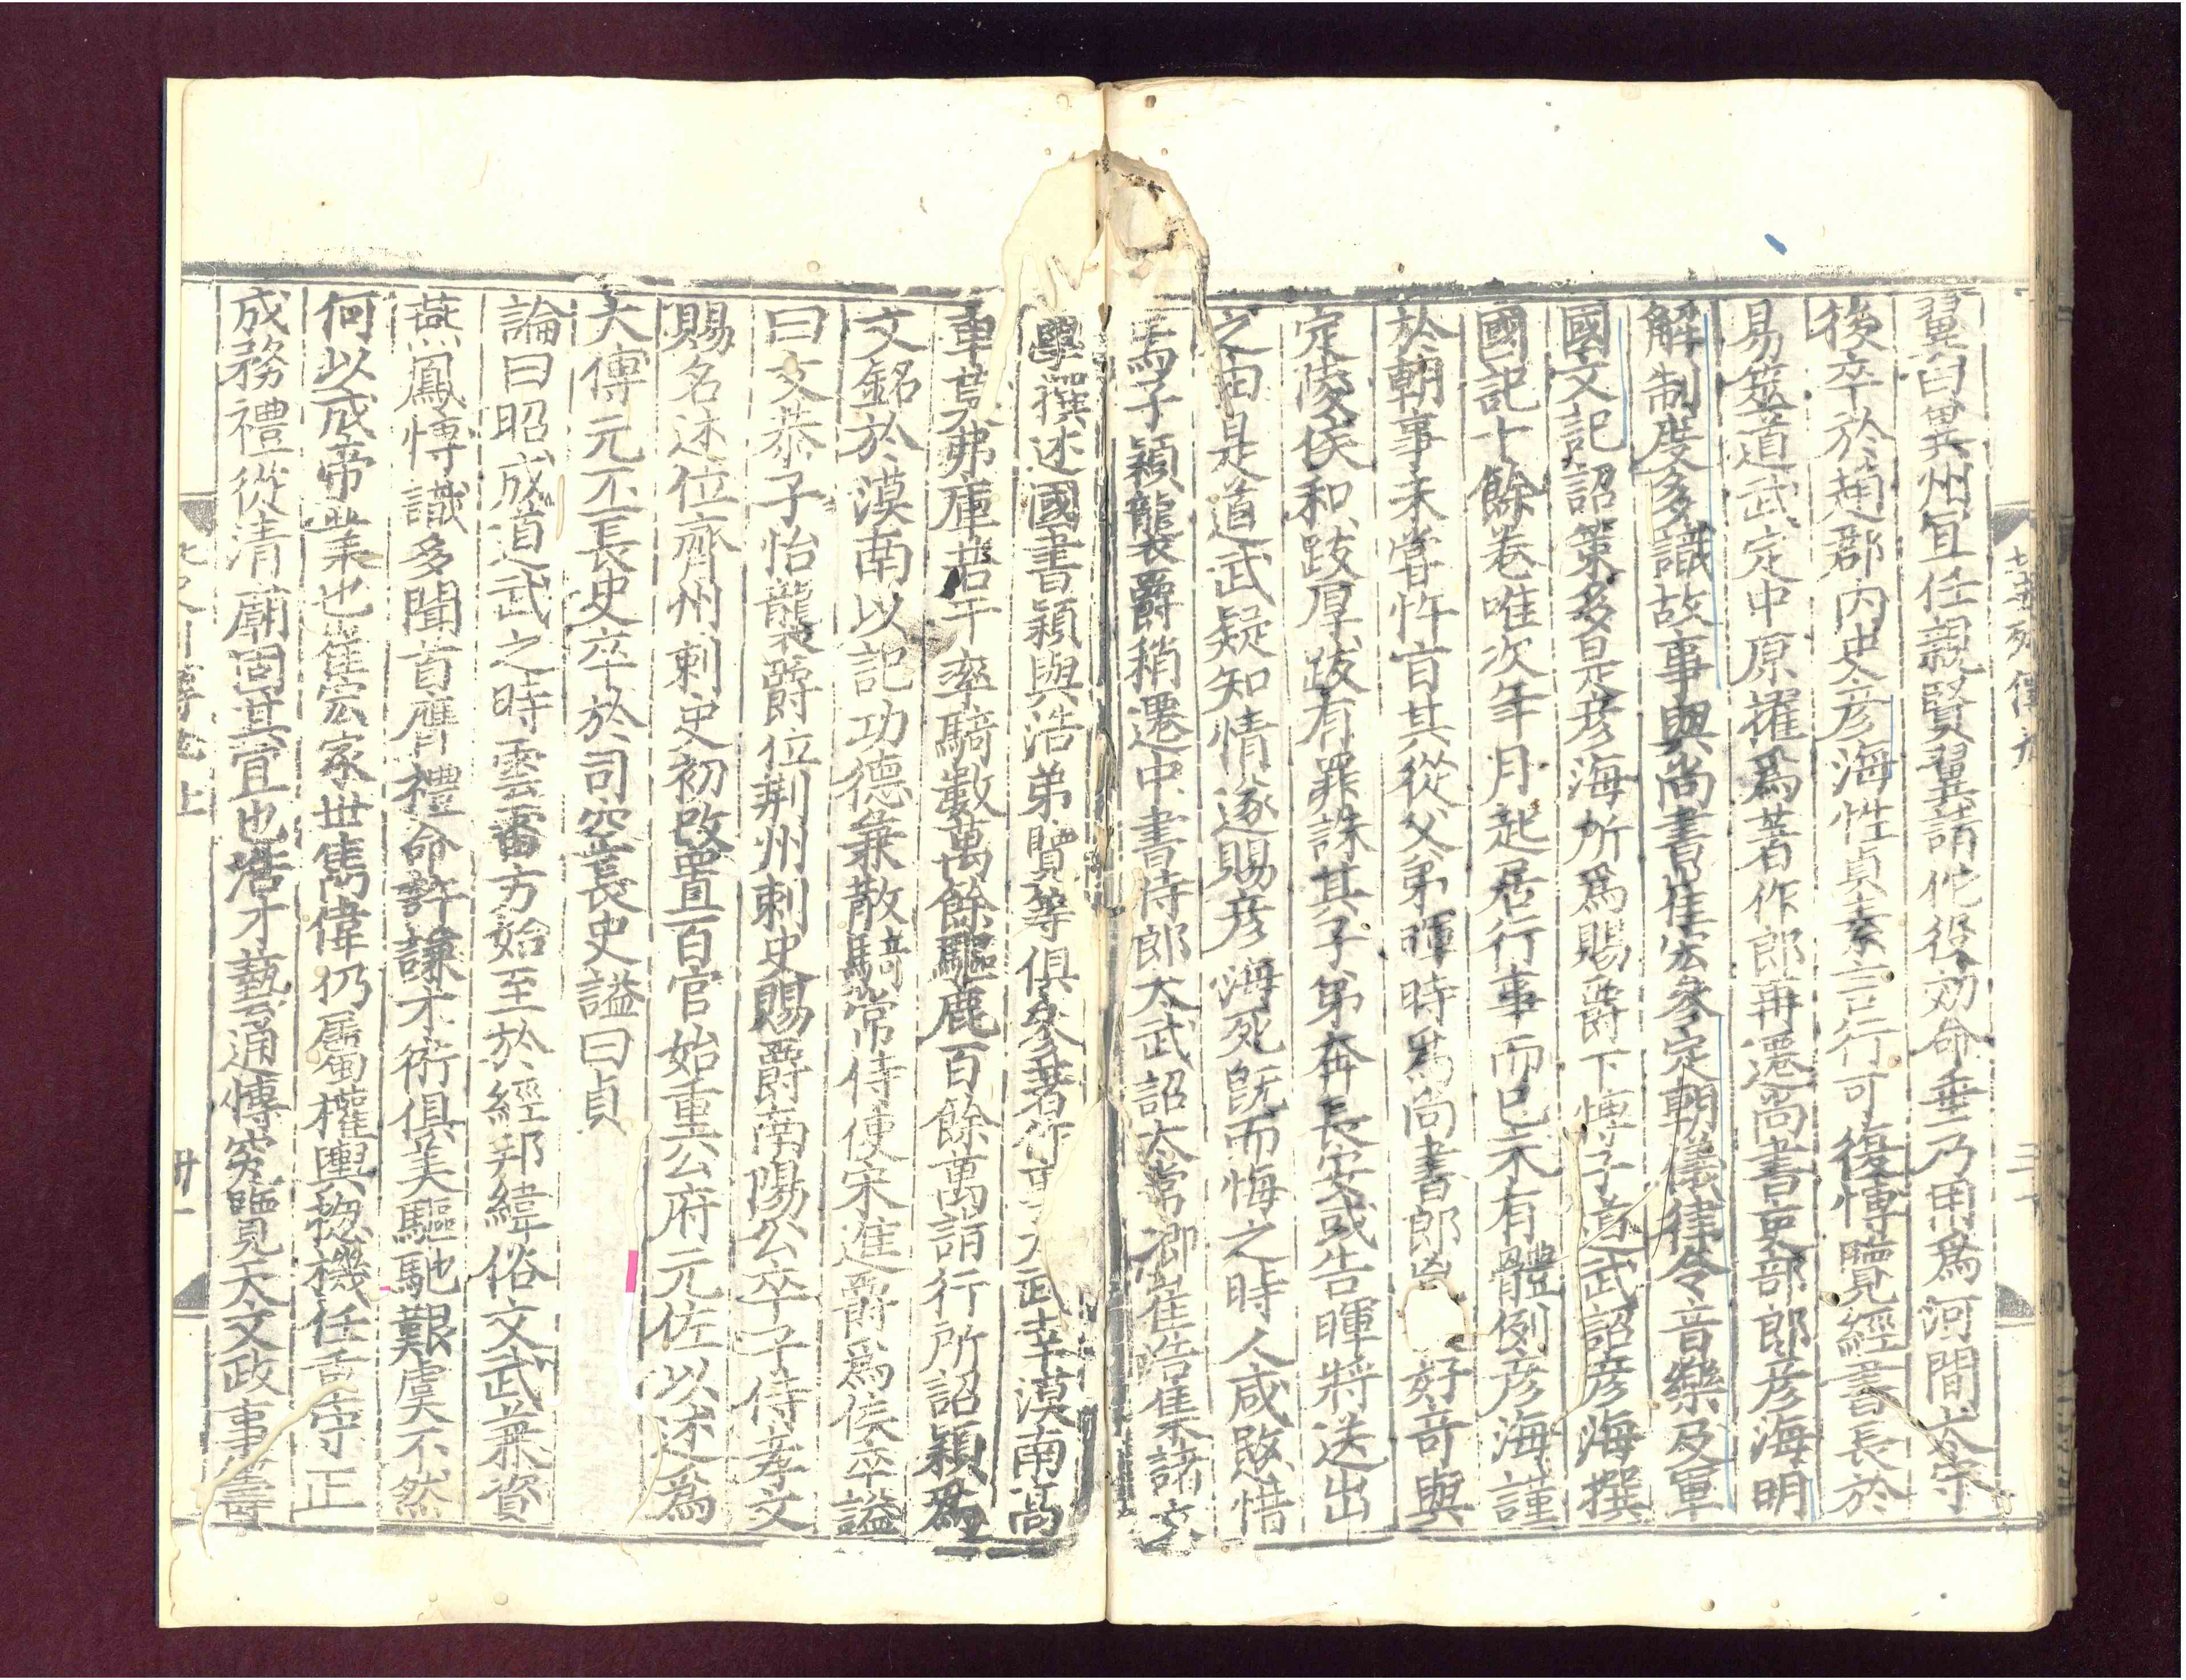 翼曰冀州宜任親賢翼請他役効命垂乃用爲河間太守
後卒於趙郡內史彥海性貞素言行可復博覽經書長於
易筮道武定中原擢爲著作郎再遷尚書吏部郎彥海明
解制度多識故事與尚書崔宏參定朝儀律令音樂及軍
國文記詔策多是彥海所爲賜爵下博子道武詔彥海撰
國記十餘卷唯次年月起居行事而已未有體例彥海謹
於朝事未嘗忤旨其從父弟暉時爲尚書郎凶 好奇與
定陵侯和跋厚跋有罪誅其子弟奔長安或告暉將送出
之由是道武疑知情遂賜彥海死旣而悔之時人咸愍惜
焉子穎襲爵稍遷中書侍郎太武詔太常卿崔浩集諸文
學撰述國書穎與浩弟覽等俱參著作事太武幸漠南高
車莫弗庫若干率騎數萬餘驅鹿百餘萬詣行所詔穎爲
文銘於漠南以記功德兼散騎常侍使宋進爵爲侯卒謚
曰文恭子怡襲爵位荆州刺史賜爵南陽公卒子侍孝文
賜名述位齊州刺史初改置百官始重公府元佐以述爲
大傅元丕長史卒於司空長史謚曰貞
論曰昭成道武之時雲雷方始至於經邦緯俗文武兼資
燕鳳博識多聞首膺禮命許謙才術俱美驅馳艱虞不然
何以成帝業也崔宏家世雋偉仍屬權輿總機任重守正
成務禮從清廟固其宜也浩才藝通博究覽天文政事籌
七 列傳九
北史列傳卷 上
卅一